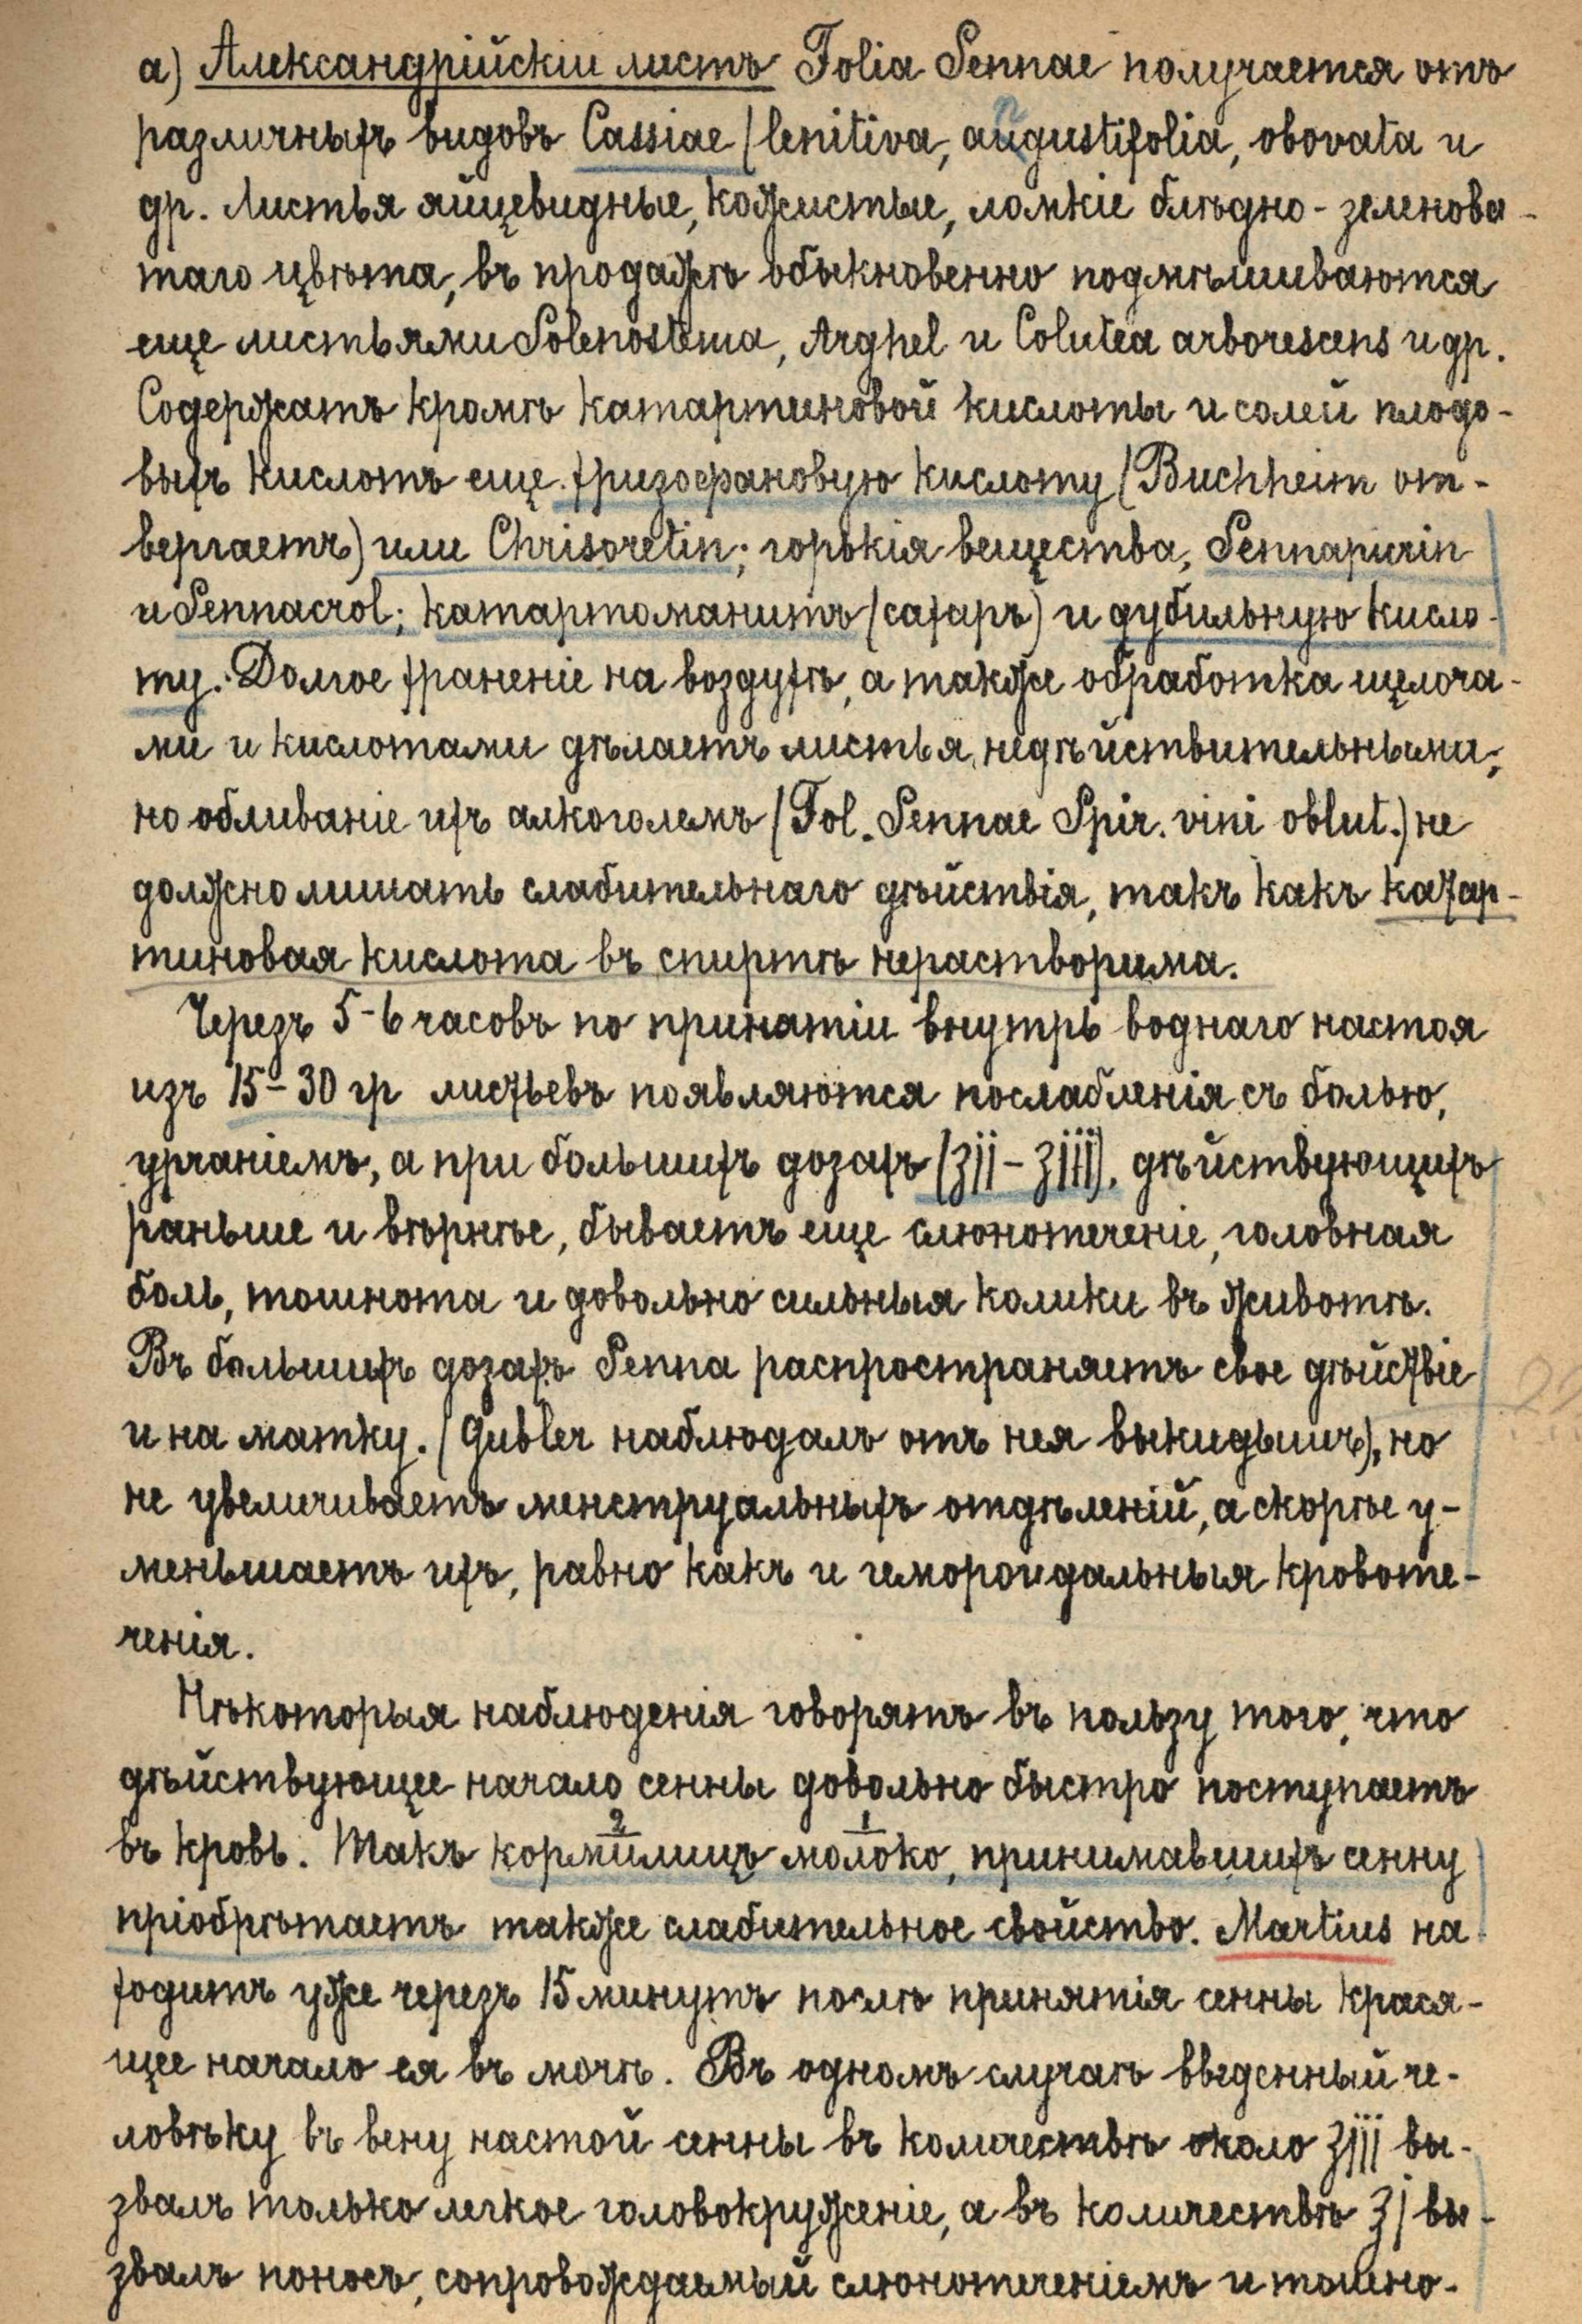 а) Александрійскій листъ Folia Sennae получается отъ
различныхъ видовъ Cassiae (lenitiva, angustifolia, obovata и
др. Листья яйцевидные, кожистые, ломкіе блѣдно-зеленова-
таго цвѣта, въ продажѣ обыкновенно подмѣшиваются
еще листьями Solenostema, Arghel и Colutea arborescens и др.
Содержатъ кромѣ катартиновой кислоты и солей плодо-
выхъ кислотъ еще хризофановую кислоту (Buchheim от-
вергаетъ) или Chrisoretin; горькія вещества, Sennapicrin
и Sennacrol; катартоманитъ (сахаръ) и дубильную кисло-
ту. Долгое храненіе на воздухѣ, а также обработка щелоча-
ми и кислотами дѣлаетъ листья недѣйствительными,
но обливаніе ихъ алкоголемъ (Fol. Sennae Spir. vini oblut.) не
должно лишать слабительнаго дѣйствія, такъ какъ катар-
тиновая кислота въ спиртѣ нерастворима.
Черезъ 5-6 часовъ по принятіи внутрь воднаго настоя
изъ 15-30 гр листьевъ появляются послабленія съ болью,
урчаніемъ, а при большихъ дозахъ (ʒii - ʒiii), дѣйствующихъ
раньше и вѣрнѣе, бываетъ еще слюнотеченіе, головная
боль, тошнота и довольно сильныя колики въ животѣ.
Въ большихъ дозахъ Senna распространяетъ свое дѣйствіе
и на матку. (Gubler наблюдалъ отъ нея выкидышъ), но
не увеличиваетъ менструальныхъ отдѣленій, а скорѣе у-
меньшаетъ ихъ, равно какъ и гемороидальныя кровоте-
ченія.
Нѣкоторыя наблюденія говорятъ въ пользу того, что
дѣйствующее начало сенны довольно быстро поступаетъ
2 1
въ кровь. Такъ кормилицъ молоко, принимавшихъ сенну
пріобрѣтаетъ также слабительное свойство. Martius на
ходитъ уже черезъ 15 минутъ послѣ принятія сенны крася-
щее начало ея въ мочѣ. Въ одномъ случаѣ введенный че-
ловѣку въ вену настой сенны въ количествѣ около ʒiii вы-
звалъ только легкое головокруженіе, а въ количествѣ ʒj вы-
звалъ поносъ, сопровождаемый слюнотеченіемъ и тошно-